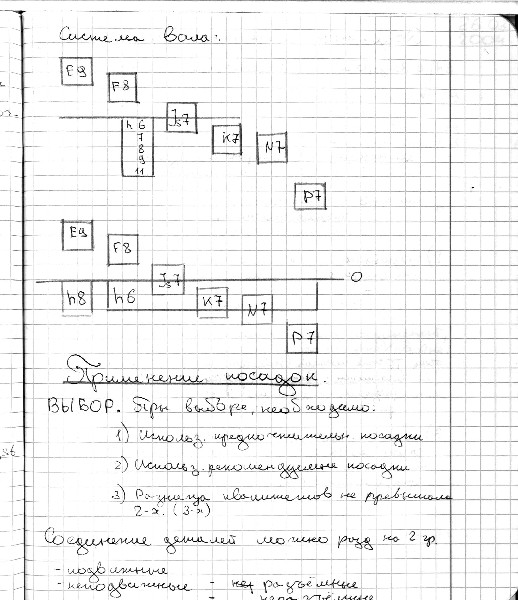 Система вала:
E9
F8
Js7
h 6
7
8
9
11
K7
N7
P7
E9
F8
Js7
O
h8
h6
K7
N7
P7
Применение посадок.
ВЫБОР. При выборе, необходимо:
1) Использ. предпочтительн. посадки
2) Использ. рекомендуемые посадки
3) Разница квалитетов не превышала
2-х. (3-х)
Соединение деталей можно разд на 2 гр.
- подвижные
- неподвижные - разъёмные